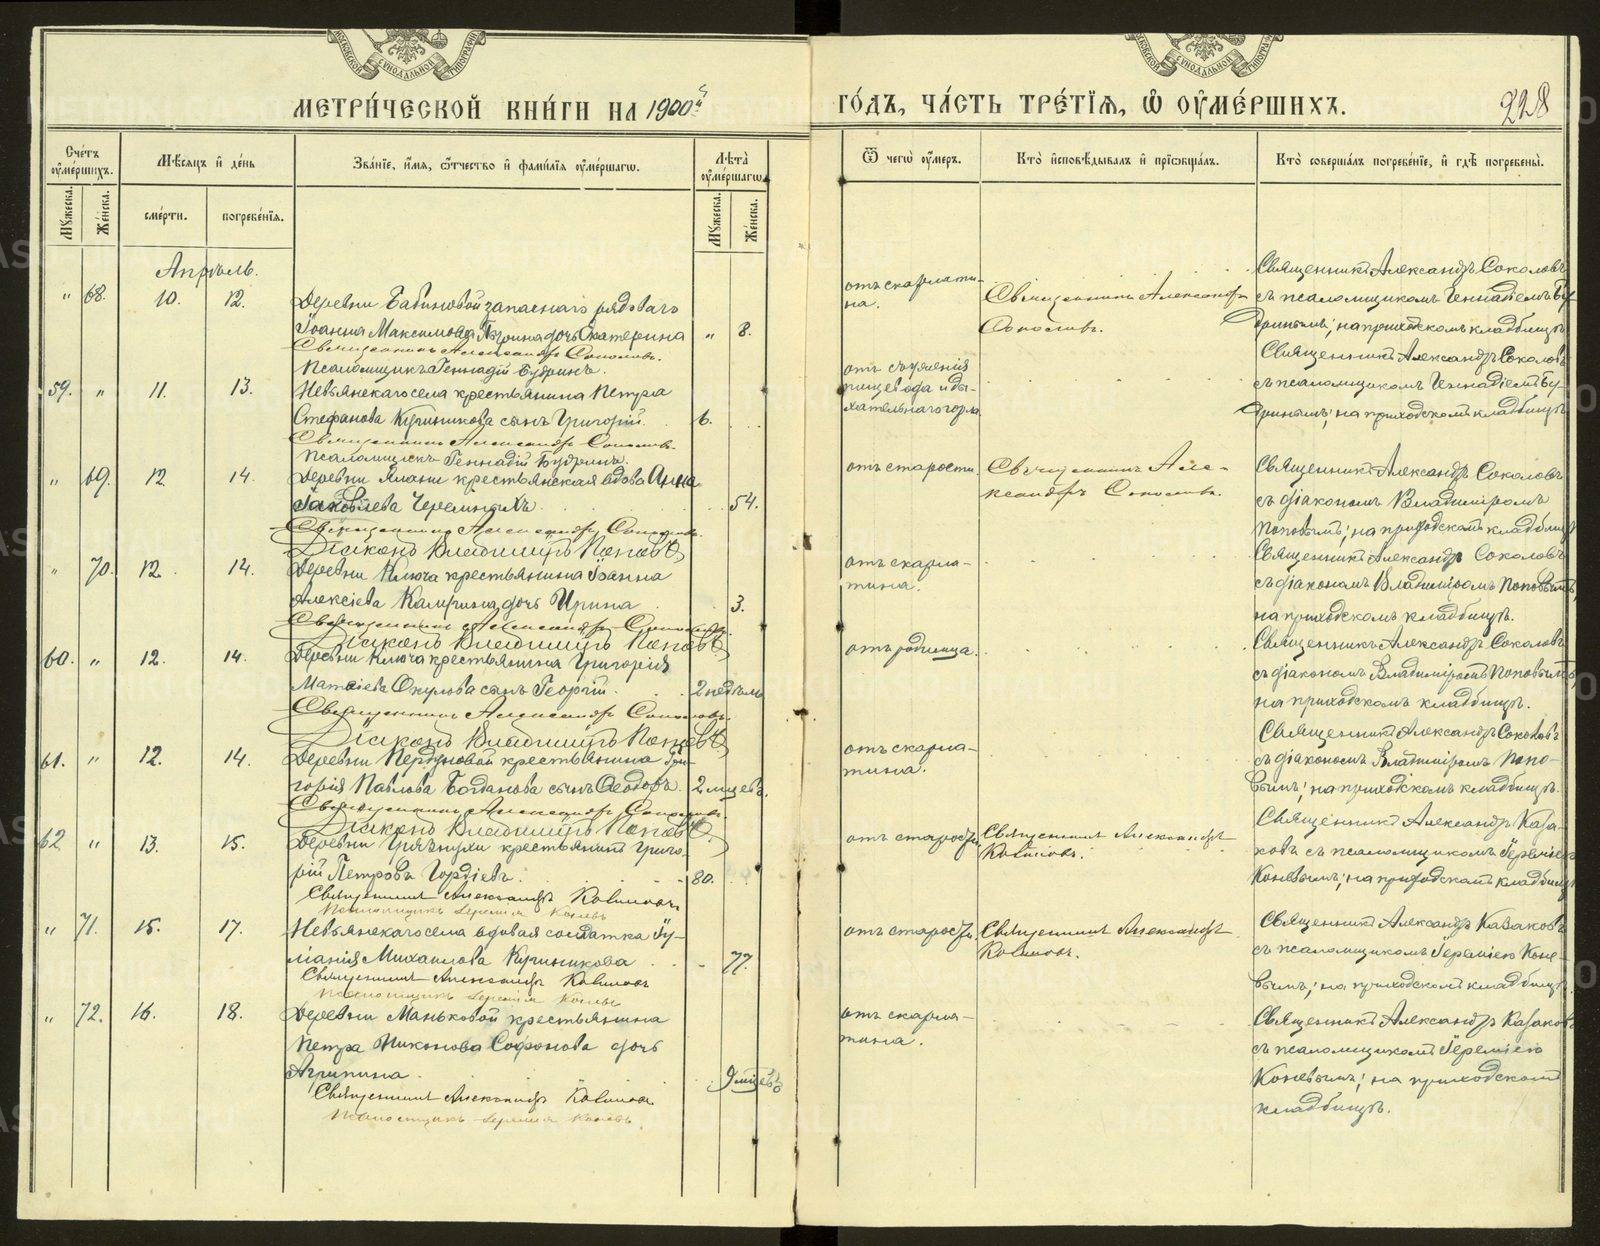 МОСКОВСКОЙ СѴНОДАЛЬНОЙ ТИПОГРАФІИ
МЕТРИ́ЧЕСКОЙ КНИ́ГИ НА 1900й
ГО́ДЪ, ЧА́СТЬ ТРЕ́ТІѦ, Ѡ҆ ОУ҆МЕ́РШИХЪ.
228
Сче́тъ оу҆ме́ршихъ.
Мѣ́сѧцъ и҆ де́нь
Зва́нїе, и҆́мѧ, ѻ҆́тчество и҆ фами́лїѧ оу҆ме́ршагѡ.
Лѣ́та̀ оу҆ме́ршагѡ
Ѿ чегѡ̀ оу҆́меръ.
Кто̀ и҆сповѣ́дывалъ и҆ прїѡбща́лъ.
Кто̀ соверша́лъ погребе́нїе, и҆ гдѣ̀ погребены̀.
Мꙋ́жеска.
Же́нска.
сме́рти.
погребе́нїѧ.
Мꙋ́жеска.
Же́нска.
Апрѣль.
" 68. 10. 12. Деревни Бабиновой запаснаго рядоваго
Іоанна Максимова дочь Екатерина " 8.
Священникъ Александръ Соколовъ.
Псаломщикъ Геннадій Будринъ.
отъ скарлати-
на.
Священникъ Александръ
Соколовъ.
Священникъ Александръ Соколовъ
съ псаломщикомъ Геннадіемъ Бу-
дринымъ; на приходскомъ кладбищѣ
59. " 11. 13. Невьянскаго села крестьянина Петра
Стефанова сынъ Григорій. 6.
Священникъ Александръ Соколовъ.
Псаломщикъ Геннадій Будринъ.
отъ съуженія
пищевода и ды-
хательнаго горла
Священникъ Александръ Соколовъ
съ псаломщикомъ Геннадіемъ Бу-
дринымъ; на приходскомъ кладбищѣ
" 69. 12. 14. Деревни Ялани крестьянская вдова Анна
Іаковлева Черемныхъ 54.
Священникъ Александръ Соколовъ.
Діаконъ Владиміръ Поповъ
отъ старости.
Священникъ Але-
ксандръ Соколовъ.
Священникъ Александръ Соколовъ
съ діакономъ Владиміромъ
Поповымъ; на приходскомъ кладбищѣ
" 70. 12. 14. Деревни Ключа крестьянина Іоанна
Алексіева дочь Ирина 3.
Священникъ Александръ Соколовъ.
Діаконъ Владиміръ Поповъ
отъ скарла-
тина.
Священникъ Александръ Соколовъ
съ діакономъ Владиміромъ Поповымъ,
на приходскомъ кладбищѣ.
60. " 12. 14. Деревни Ключа крестьянина Григорія
Матѳіева Окулова сынъ Георгій. 2 недѣли
Священникъ Александръ Соколовъ.
Діаконъ Владиміръ Поповъ
отъ родимца.
Священникъ Александръ Соколовъ
съ діакономъ Владиміромъ Поповымъ,
на приходскомъ кладбищѣ.
61. " 12. 14. Деревни крестьянина Гри-
горія Павлова Богданова сынъ Ѳеодоръ. 2 мцевъ.
Священникъ Александръ Соколовъ.
Діаконъ Владиміръ Поповъ
отъ скарла-
тина.
Священникъ Александръ Соколовъ
съ діакономъ Владиміромъ Попо-
вымъ; на приходскомъ кладбищѣ.
62 " 13. 15. Деревни Грязнухи крестьянинъ Григо-
рій Петровъ Гордіевъ. 80.
Священникъ Александръ Казаковъ
Псаломщикъ Іеремія Коневъ
отъ старости
Священникъ Александръ
Казаковъ.
Священникъ Александръ Каза-
ковъ съ псаломщикомъ Іереміею
Коневымъ; на приходскомъ кладбищѣ
" 71. 15. 17. Невьянскаго села вдовая солдатка Іу-
ліанія Михаилова 77.
Священникъ Александръ Казаковъ
Псаломщикъ Іеремія Коневъ
отъ старости.
Священникъ Александръ
Казаковъ.
Священникъ Александръ Казаковъ
съ псаломщикомъ Іереміею Коне-
вымъ; на приходскомъ кладбищѣ.
" 72. 16. 18. Деревни Маньковой крестьянина
Петра Никонова Софонова дочь
Агрипина. 9 мцевъ
Священникъ Александръ Казаковъ
Псаломщикъ Іеремія Коневъ.
отъ скарла-
тина.
Священникъ Александръ Казаковъ
съ псаломщикомъ Іереміею
Коневымъ; на приходскомъ
кладбищѣ.